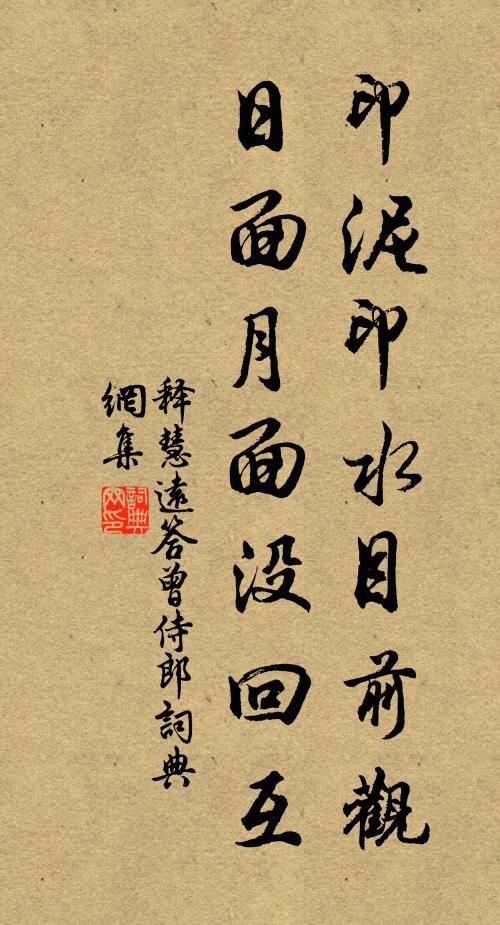 印泥印水目前觀
日面月面没回互
释慧遠答曾侍郎詞典
網集
詞典網印